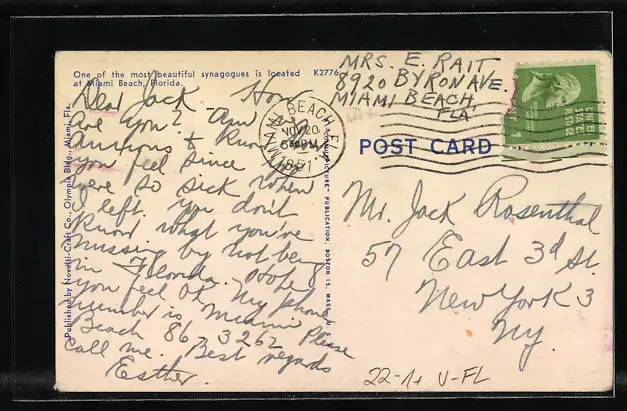 One of the most beautiful synagogues is located K2776
at Miami Beach, Florida.
Dear Jack - How
are you? Am
anxious to know how
you feel since you
were so sick when
I left. You don't
know what you've
missing by not being
in Florida. Hope
you feel OK. My phone
number is Miami
Beach 86-3262 Please
call me. Best regards
Esther.
Published by Novelti-Craft Co., Olympia Bldg., Miami, Fla.
PUBLICATION, BOSTON 15, MASS., U.
MRS. E. RAIT
8920 BYRON AVE.
MIAMI BEACH,
FLA
MIAMI BEACH, FLA
NOV 20
PM
1951
UNITED
STATES
POSTAGE
1
POST CARD
Mr. Jack Rosenthal
57 East 3d St.
New York 3
Ny.
22-1+ U-FL